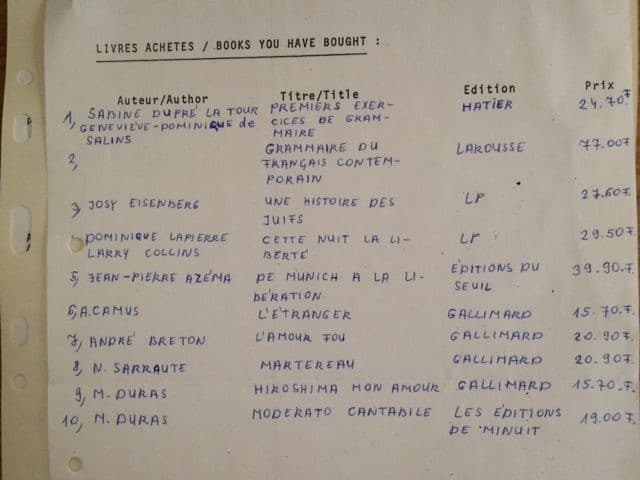 LIVRES ACHETES / BOOKS YOU HAVE BOUGHT :
Auteur/Author Titre/Title Edition Prix
1, SABINE DUPRÉ LA TOUR PREMIERS EXER- HATIER 24.70F
GENEVIÈVE-DOMINIQUE de CICES DE GRAM-
SALINS MAIRE
2, GRAMMAIRE DU LAROUSSE 77.00F
FRANÇAIS CONTEM-
PORAIN
3, JOSY EISENBERG UNE HISTOIRE DES LP 27.60F
JUIFS
DOMINIQUE LAPIERRE CETTE NUIT LA LI- LP 29.50F
LARRY COLLINS BERTÉ
5, JEAN-PIERRE AZÉMA DE MUNICH A LA LI- ÉDITIONS DU 39.90.F.
BÉRATION SEUIL
6, A. CAMUS L'ÉTRANGER GALLIMARD 15.70.F.
7, ANDRÉ BRETON L'AMOUR FOU GALLIMARD 20.90F.
8, N. SARRAUTE MARTEREAU GALLIMARD 20.90F.
9, M. DURAS HIROSHIMA MON AMOUR GALLIMARD 15.70.F.
10, M. DURAS MODERATO CANTABILE LES ÉDITIONS 19.00F.
DE MINUIT